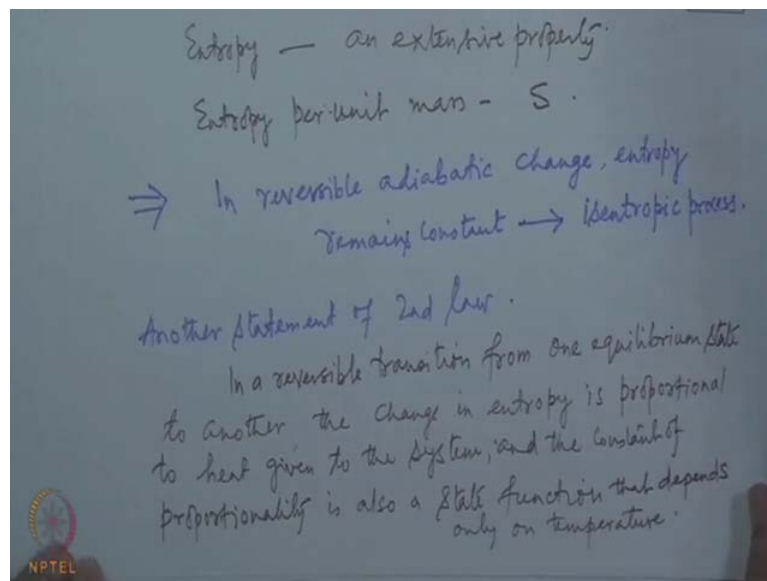 Entropy — an extensive property.
Entropy per unit mass - S.
⇒ In reversible adiabatic change, entropy
remains constant → isentropic process.
Another statement of 2nd law.
In a reversible transition from one equilibrium state
to another the change in entropy is proportional
to heat given to the system, and the constant of
proportionality is also a state function that depends
only on temperature.
NPTEL